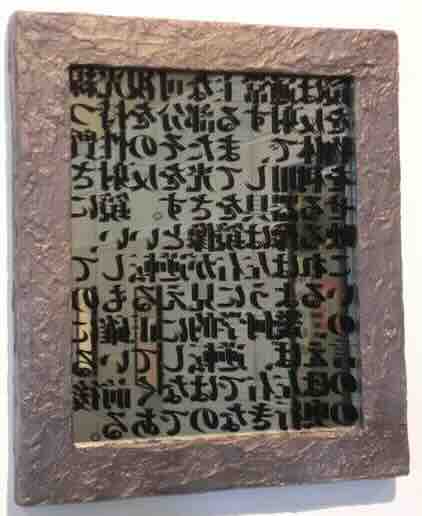 鏡は通常、主な可視光線
を反射する部分を持つ
物体で、またその性質
を利用して光を反射さ
せる器具をさす。鏡に
映る像は鏡像といい、
これは左右が逆転して
いるように見えるもの
の、幾何学的に
えば、逆転してい
のは左右ではなく前後
の奥行きなのである。